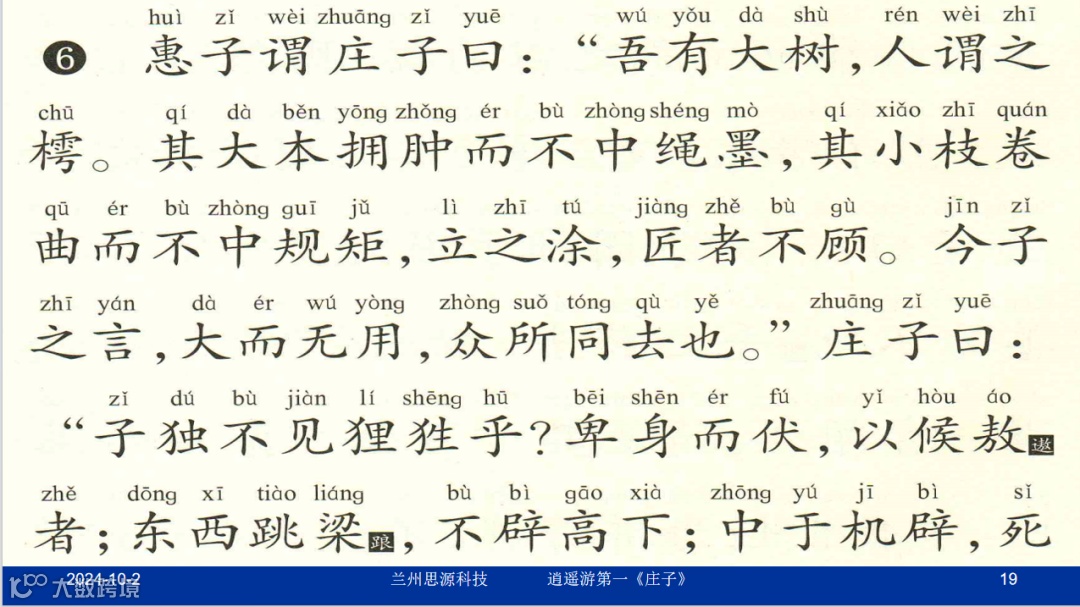 huì zǐ wèi zhuāng zǐ yuē wú yǒu dà shù rén wèi zhī
6 惠子谓庄子曰：“吾有大树，人谓之
chū qí dà běn yōng zhǒng ér bù zhòng shéng mò qí xiǎo zhī quán
樗。其大本拥肿而不中绳墨，其小枝卷
qū ér bù zhòng guī jǔ lì zhī tú jiàng zhě bù gù jīn zǐ
曲而不中规矩，立之涂，匠者不顾。今子
zhī yán dà ér wú yòng zhòng suǒ tóng qù yě zhuāng zǐ yuē
之言，大而无用，众所同去也。”庄子曰：
zǐ dú bù jiàn lí shēng hū bēi shēn ér fú yǐ hòu áo
“子独不见狸狌乎？卑身而伏，以候敖遨
zhě dōng xī tiào liáng bù bì gāo xià zhōng yú jī bì sǐ
者；东西跳梁踉，不辟高下；中于机辟，死
2024-10-2 兰州思源科技 逍遥游第一《庄子》 19
大数跨境